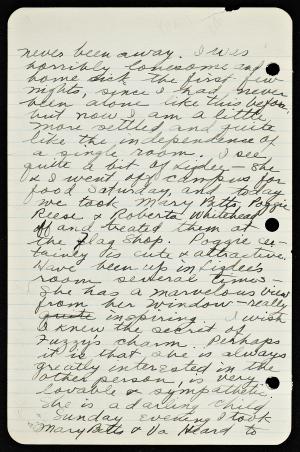 never been away. I was
horribly lonesome and
home sick the first few
nights, since I had never
been alone like this before,
but now I am a little
more settled and quite
like the independence of
a single room. I see
quite a bit of Ligdee – She
& I went off campus for
food Saturday, and today
we took Mary Betts, Poggie
Reese & Roberta Whitehead
off and treated them at
the Flag Shop. Poggie cer-
tainly is cute & attractive.
Have been up in Ligdee's
room several times –
She has a marvelous view
from her window – really
quite inspiring. I wish
I knew the secret of
Fuzzy's charm. Perhaps
it is that she is always
greatly interested in the
other person, is very
lovable & sympathetic.
She is a darling child.
Sunday evening I took
Mary Betts & Va Heard to